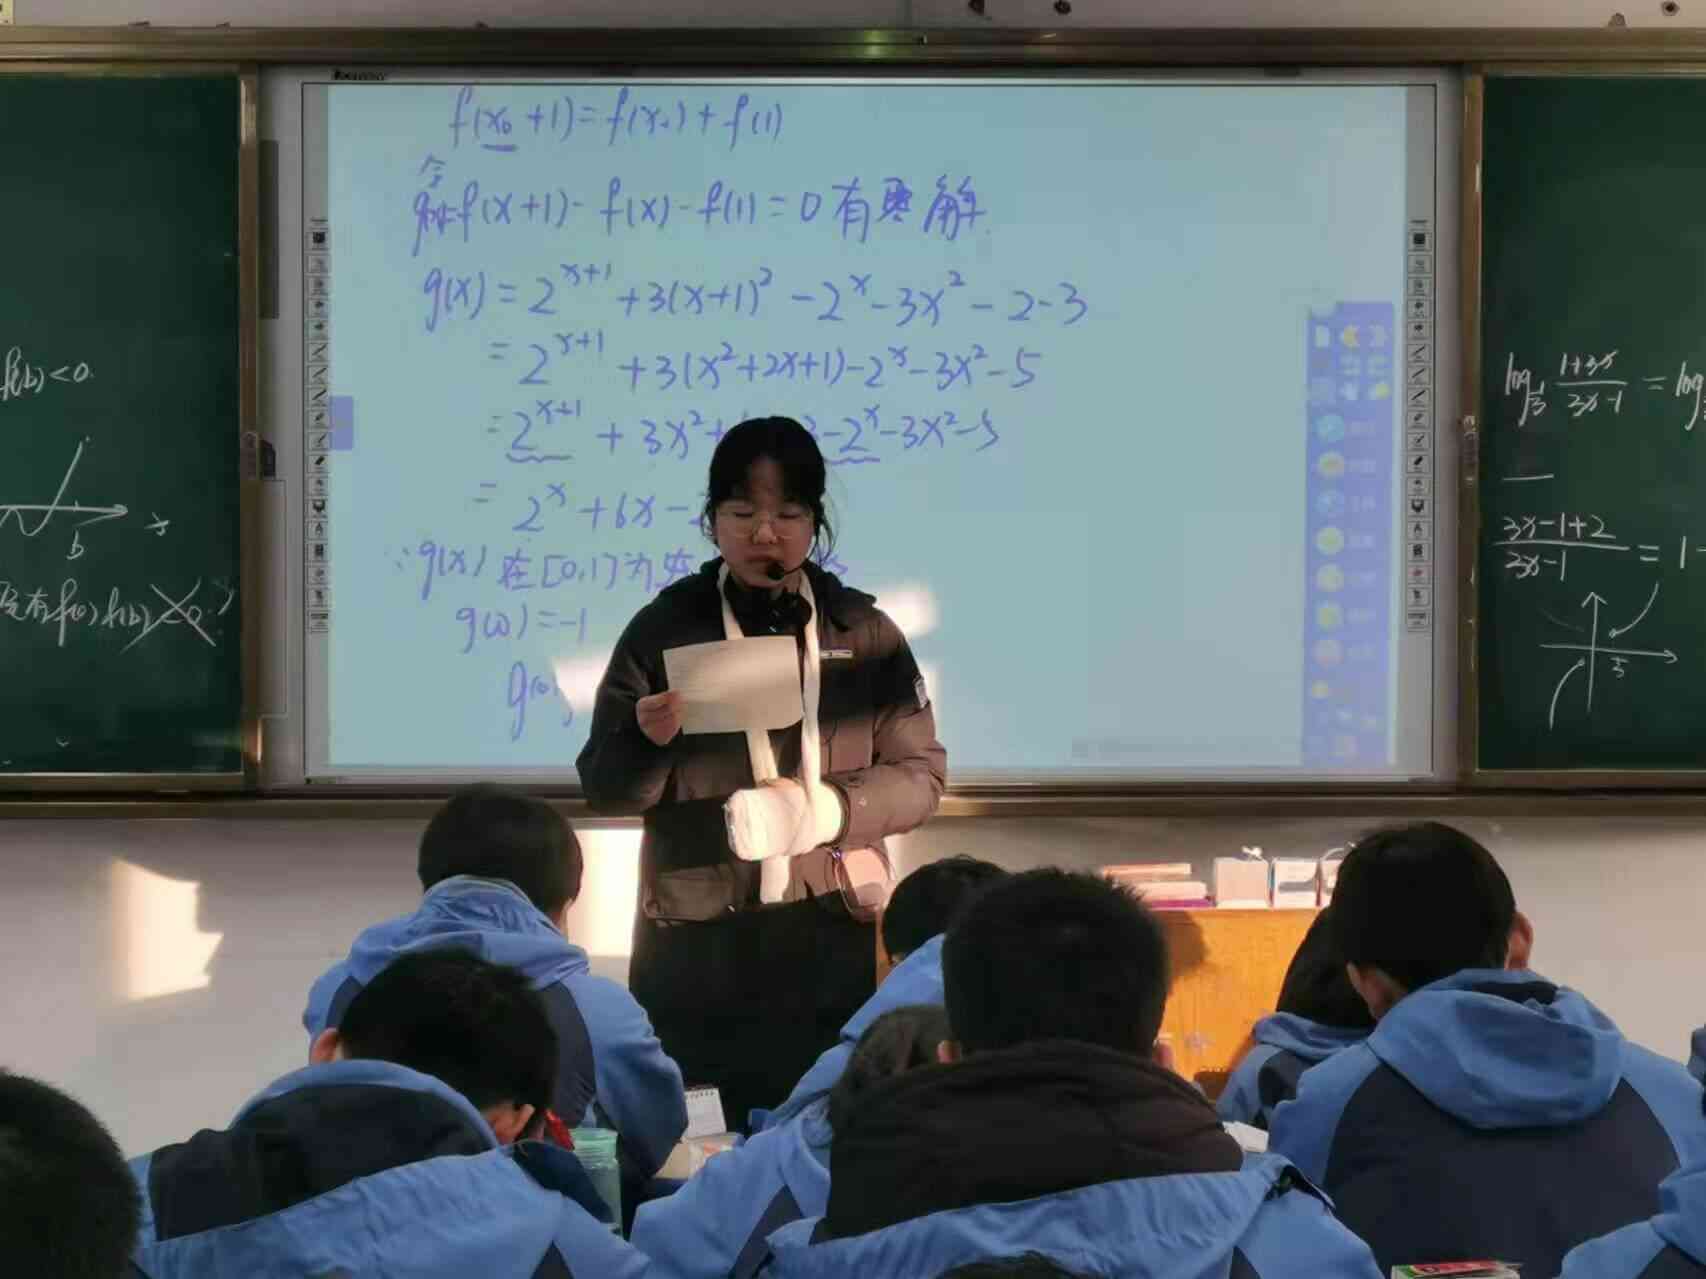 f(b)<0.
b
x
f(x₀+1)=f(x₀)+f(1)
令
g(x)=f(x+1)-f(x)-f(1)=0有解
g(x)=2^{x+1}+3(x+1)²-2^x-3x²-2-3
=2^{x+1}+3(x²+2x+1)-2^x-3x²-5
=2^{x+1}+3x²+ 3-2^x-3x²-5
=2^x+6x-
∵g(x)在[0,1]为
g(0)=-1
g(0)
log_{1/3} (1+3x)/(3x-1)=log
(3x-1+2)/(3x-1)=1
1/3